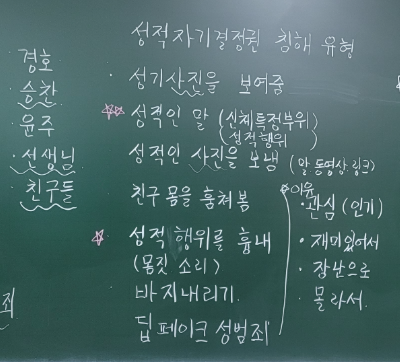 성적자기결정권 침해 유형
경호
승찬
윤주
선생님
친구들
· 성기사진을 보여줌
성적인 말 (신체특정부위)
(성적행위)
성적인 사진을 보냄 (말, 동영상, 링크)
친구 몸을 훔쳐봄
성적 행위를 흉내
(몸짓 소리)
바지내리기
딥페이크 성범죄
이유
· 관심 (인기)
· 재미있어서
· 장난으로
· 몰라서.
죄